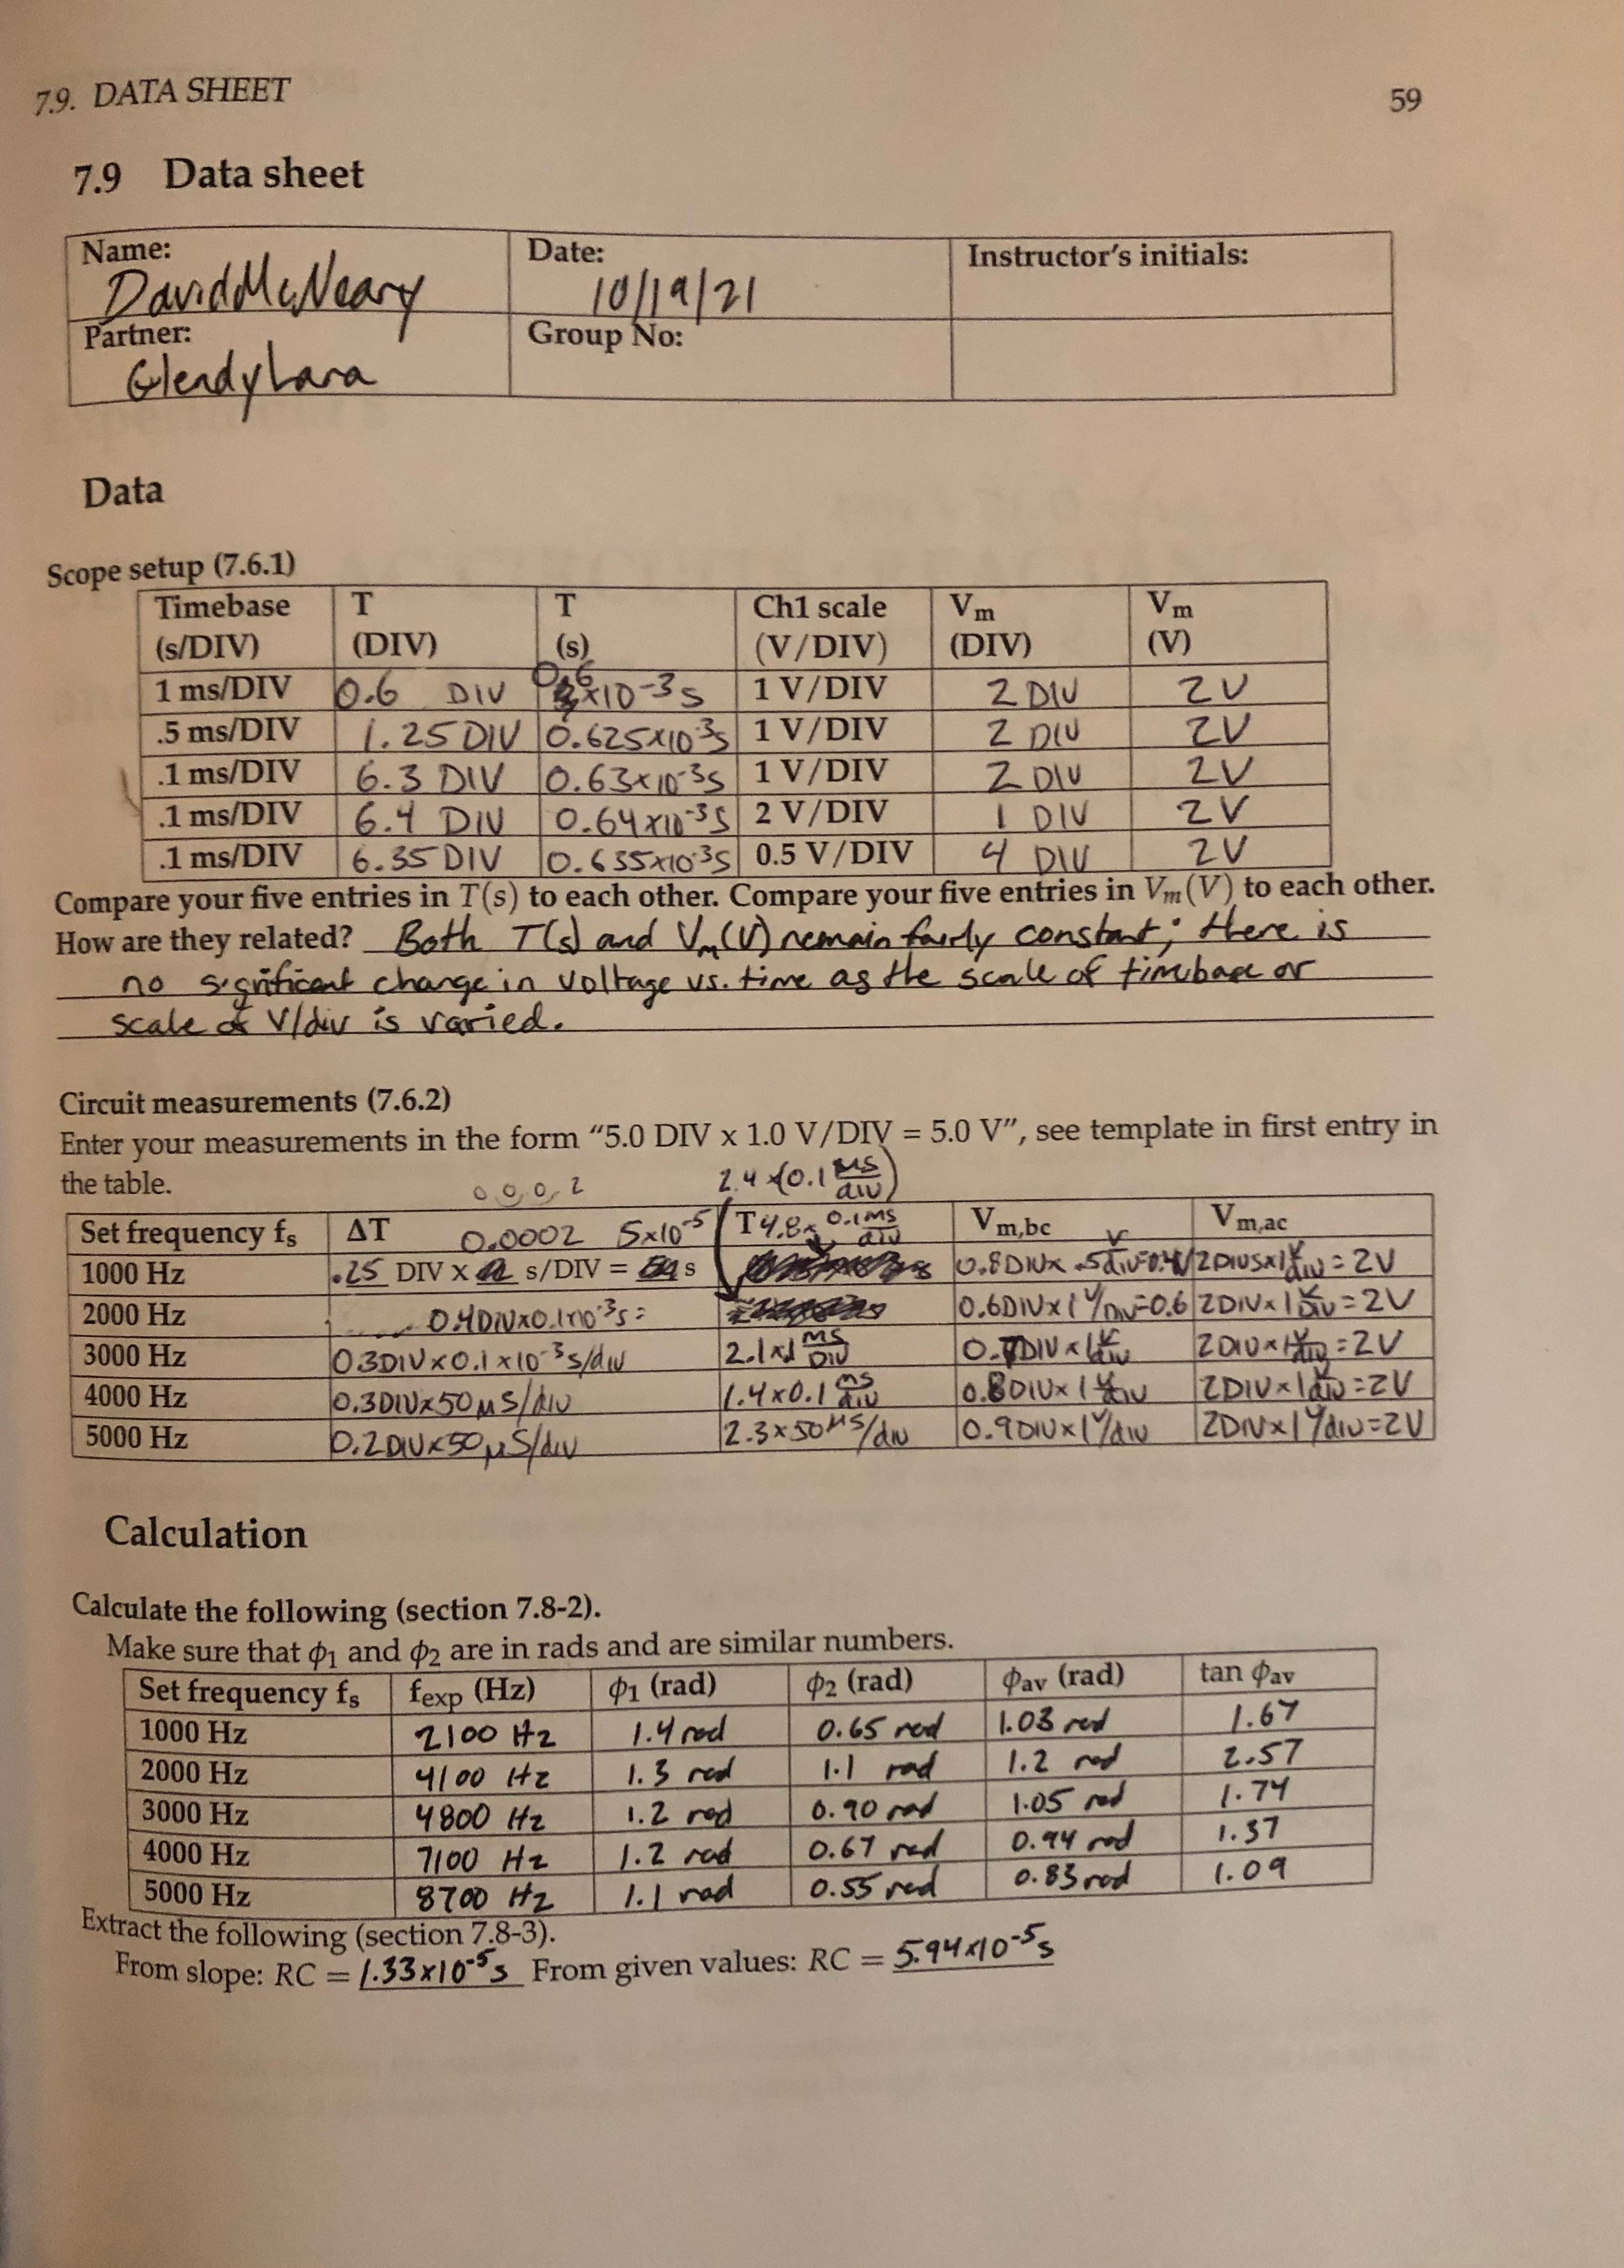 7.9. DATA SHEET 59
7.9 Data sheet
Name: Date: Instructor's initials:
David McNeary 10/19/21
Partner: Group No:
Glendy Lara
Data
Scope setup (7.6.1)
Timebase T T Ch1 scale Vm Vm
(s/DIV) (DIV) (s) (V/DIV) (DIV) (V)
1 ms/DIV 0.6 DIV 0.6x10-3 s 1 V/DIV 2 DIV 2V
.5 ms/DIV 1.25 DIV 0.625x10-3s 1 V/DIV 2 DIV 2V
.1 ms/DIV 6.3 DIV 0.63x10-3s 1 V/DIV 2 DIV 2V
.1 ms/DIV 6.4 DIV 0.64x10-3s 2 V/DIV 1 DIV 2V
.1 ms/DIV 6.35 DIV 0.635x10-3s 0.5 V/DIV 4 DIV 2V
Compare your five entries in T(s) to each other. Compare your five entries in Vm(V) to each other.
How are they related? Both T(s) and Vm(V) remain fairly constant; there is
no significant change in voltage vs. time as the scale of timebase or
scale of V/div is varied.
Circuit measurements (7.6.2)
Enter your measurements in the form "5.0 DIV x 1.0 V/DIV = 5.0 V", see template in first entry in
the table. 0 0 0 2 2.4 x(0.1 ms/div)
Set frequency fs ΔT 0.0002 5x10-5 T 4.8x 0.1ms/div Vm,bc Vm,ac
1000 Hz .25 DIV x s/DIV = s 0.8DIVx .5 V/div=0.4V 2DIVSx1 V/div=2V
2000 Hz 0.4DIVx0.1x10-3s= 0.6DIVx1 V/DIV=0.6 2DIVx1 V/DIV=2V
3000 Hz 0.3DIVx0.1x10-3s/div 2.1x1 ms/DIV 0.7DIVx1 V/div 2DIVx1 V/div=2V
4000 Hz 0.3DIVx50μs/div 1.4x0.1 ms/div 0.8DIVx1 V/div 2DIVx1 V/div=2V
5000 Hz 0.2DIVx50μs/div 2.3x50μs/div 0.9DIVx1V/div 2DIVx1V/div=2V
Calculation
Calculate the following (section 7.8-2).
Make sure that ϕ1 and ϕ2 are in rads and are similar numbers.
Set frequency fs fexp (Hz) ϕ1 (rad) ϕ2 (rad) ϕav (rad) tan ϕav
1000 Hz 2100 Hz 1.4 rad 0.65 rad 1.03 rad 1.67
2000 Hz 4100 Hz 1.3 rad 1.1 rad 1.2 rad 2.57
3000 Hz 4800 Hz 1.2 rad 0.90 rad 1.05 rad 1.74
4000 Hz 7100 Hz 1.2 rad 0.67 rad 0.94 rad 1.37
5000 Hz 8700 Hz 1.1 rad 0.55 rad 0.83 rad 1.09
Extract the following (section 7.8-3).
From slope: RC = 1.33x10-5s From given values: RC = 5.94x10-5s